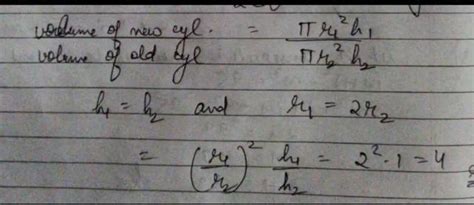 volume of new cyl. = πr₁²h₁
volume of old cyl πr₂²h₂
h₁ = h₂ and r₁ = 2r₂
= (r₁/r₂)² h₁/h₂ = 2²·1 = 4